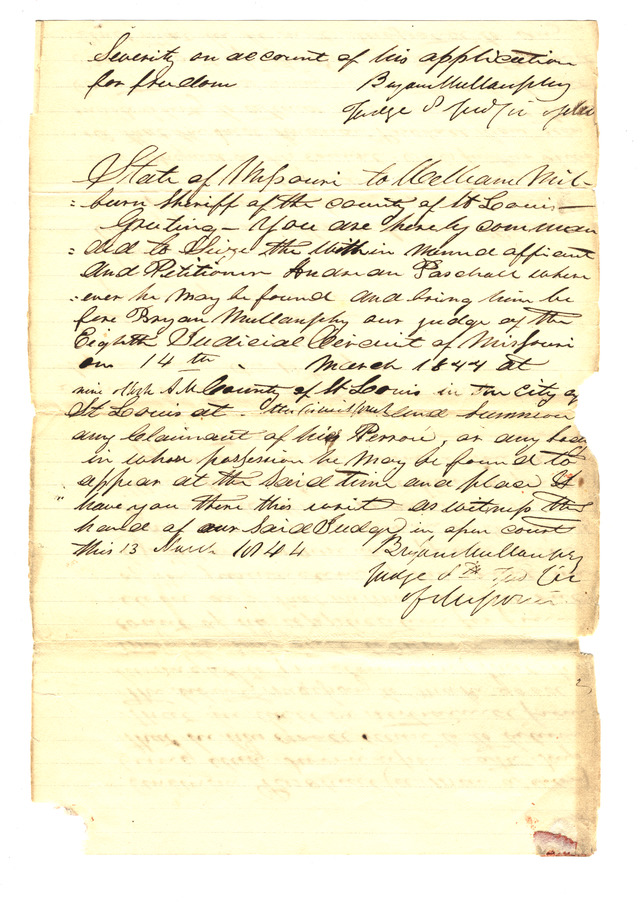 Severity on account of his application
for freedom Bryan Mullanphy
Judge 8 Jud Cir of Mo
State of Missouri to William Mil-
=burn Sheriff of the county of St Louis—
Greeting— You are hereby comman
=ded to Seize the within named affiant
And Petitioner Andrean Paschall where
=ever he may be found and bring him be
fore Bryan Mullanphy our judge of the
Eighth Judicial Circuit of Missouri
on 14th March 1844 at
nine oclock A.M. County of St Louis in the City of
St Louis at and summon
any Claimant of his Person, or any body
in whose possession he may be found to
appear at the said time and place &
have you there this writ as witness the
hand of our said Judge in open court
this 13 March 1844 Bryan Mullanphy
Judge 8th Jud Cir
of Missouri